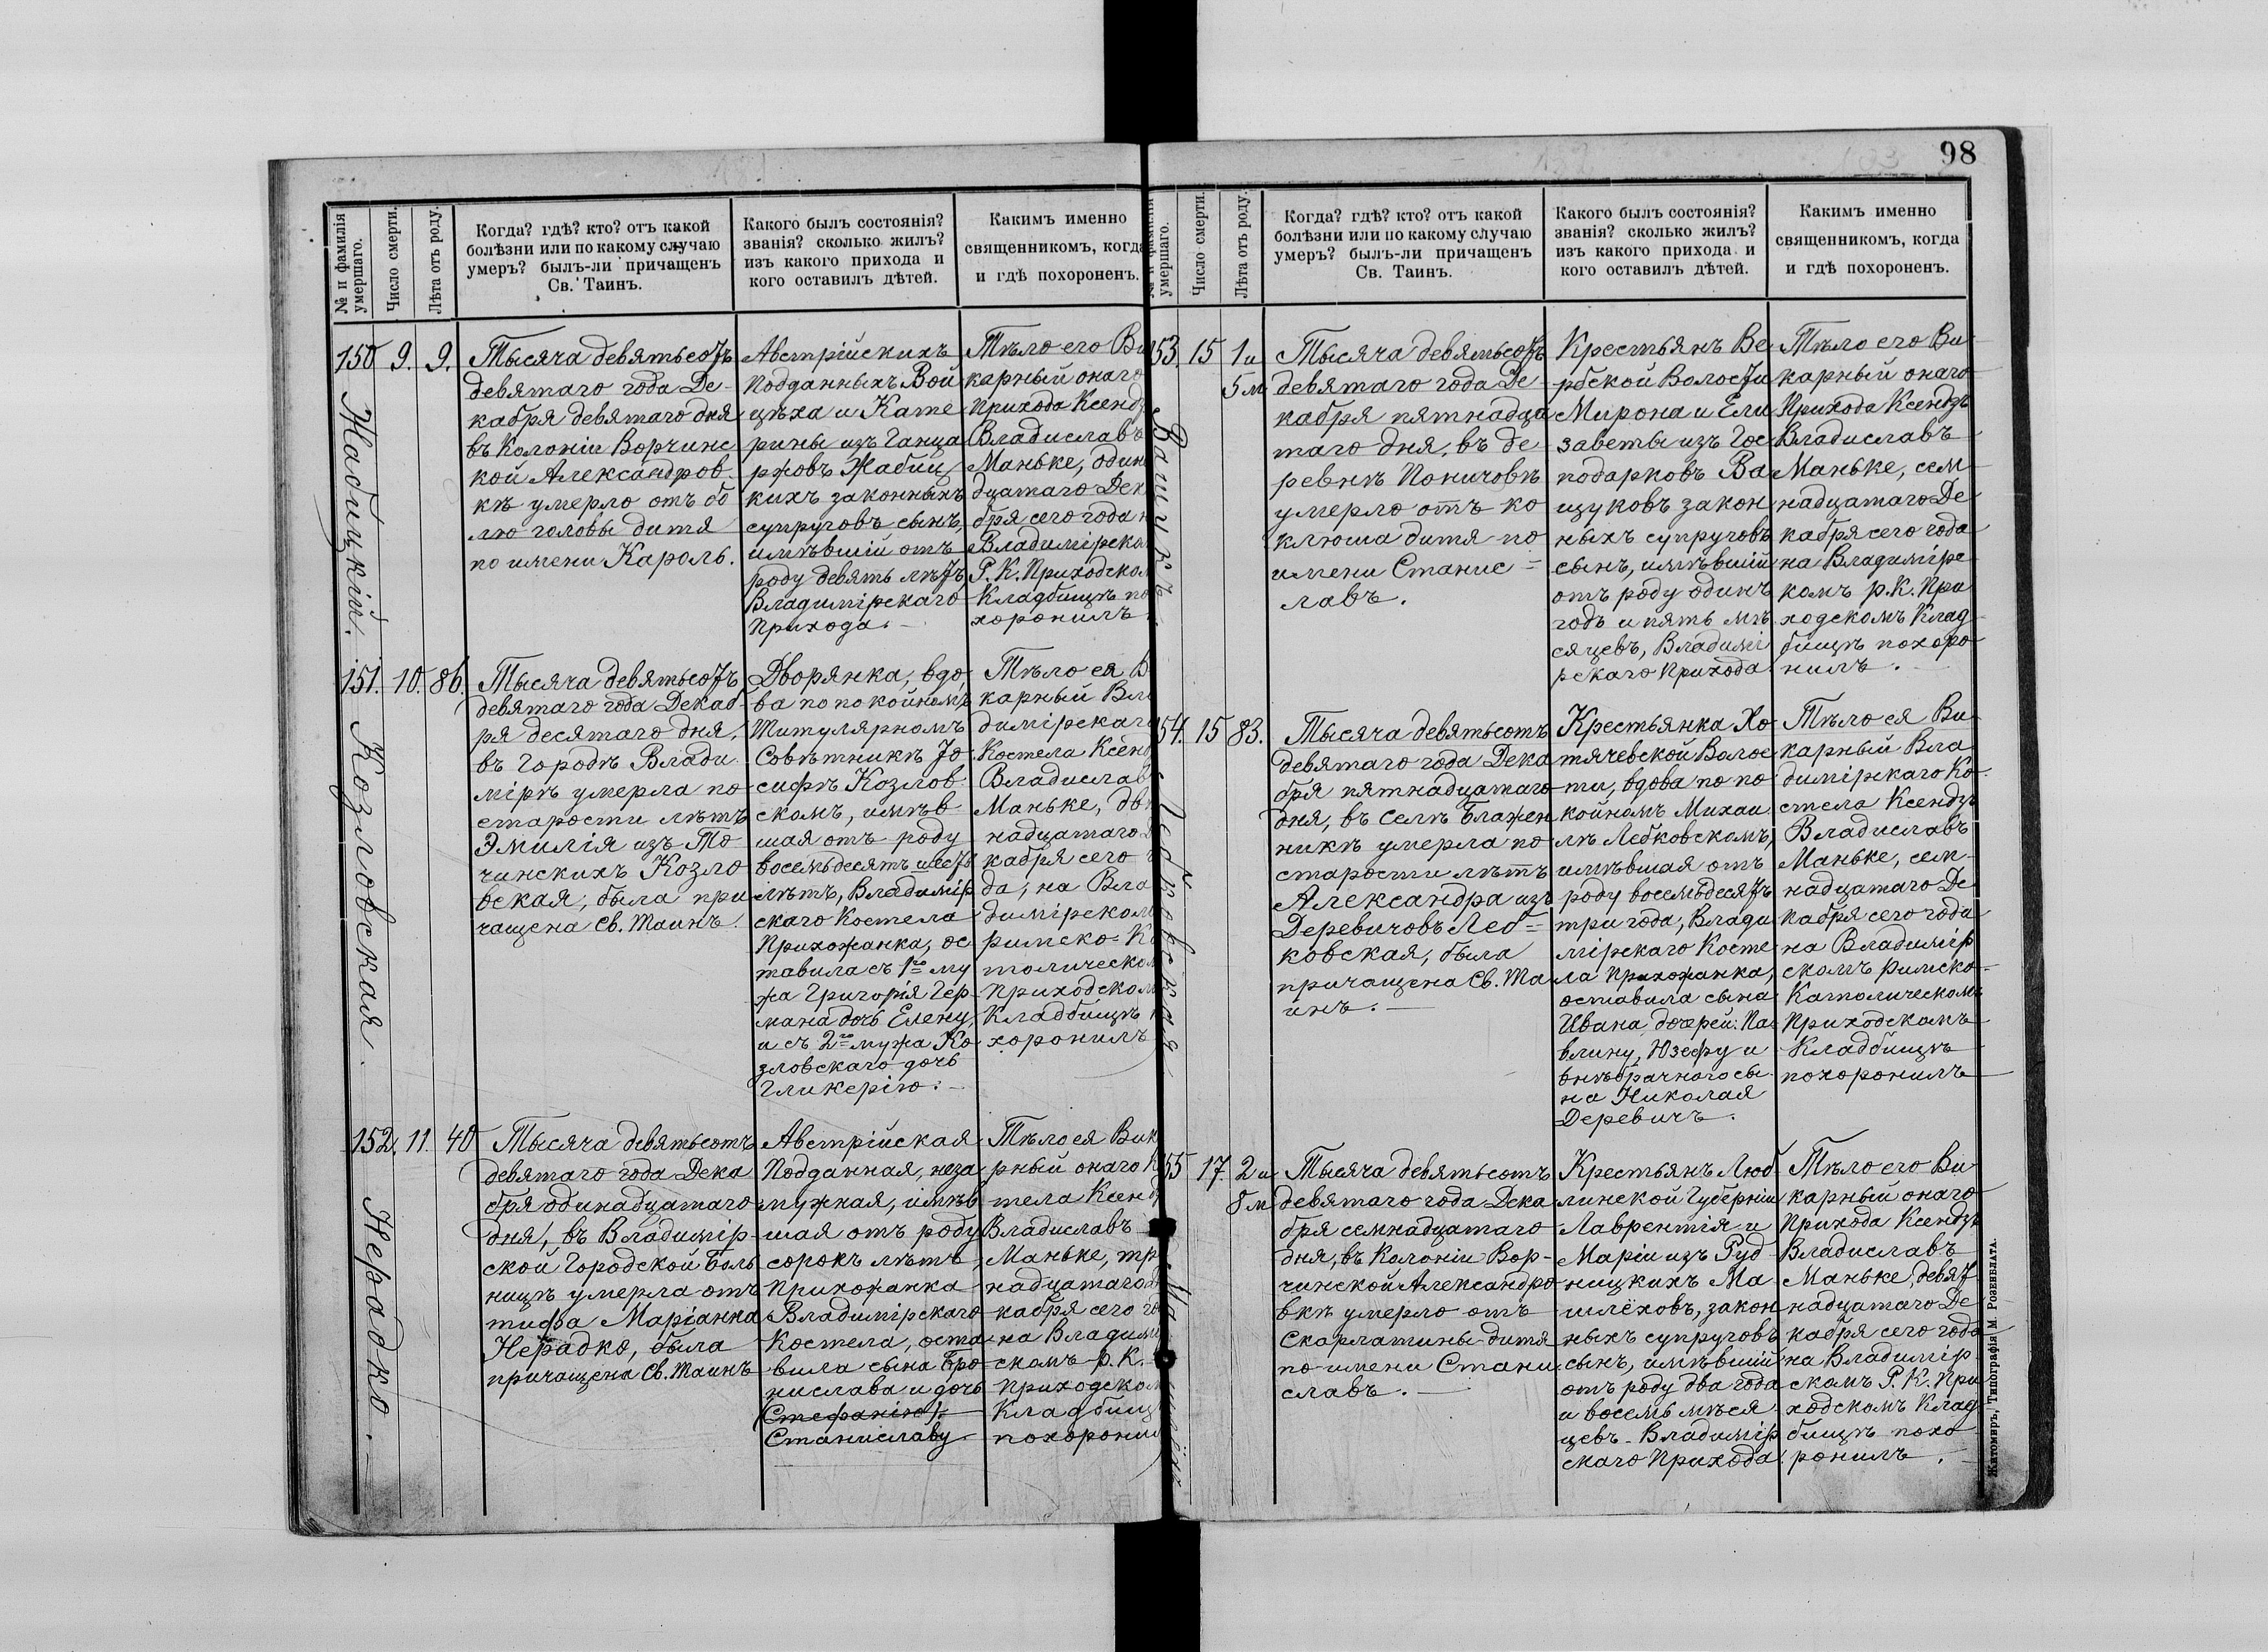 98
№ и фамилія умершаго.
Число смерти.
Лѣта отъ роду.
Когда? гдѣ? кто? отъ какой
болѣзни или по какому случаю
умеръ? былъ-ли причащенъ
Св. Таинъ.
Какого былъ состоянія?
званія? сколько жилъ?
изъ какого прихода и
кого оставилъ дѣтей.
Какимъ именно
священникомъ, когда
и гдѣ похороненъ.
150
9.
9.
Тысяча девятьсотъ
девятаго года Де-
кабря девятаго дня
въ Колоніи Ворчинс
кой Александров-
кѣ умерло отъ бо
лю головы дитя
по имени Кароль.
Австрійскихъ
Подданныхъ Вой
цѣха и Кате
рины изъ Ганца
ржовъ
кихъ законныхъ
супруговъ сынъ,
имѣвшій отъ
роду девять лѣтъ
Владимірскаго
Прихода.
Тѣло его Ви
карный онаго
Прихода Ксендз
Владиславъ
Маньке, один
дцатаго Дек
бря сего года н
Владимірско
Р. К. Приходско
Кладбищѣ по
хоронилъ
151.
10.
86.
Козловская.
Тысяча девятьсотъ
девятаго года Декаб-
ря десятаго дня,
въ Городѣ Влади-
мірѣ умерла по
старости лѣтъ
Эмилія изъ То
чинскихъ Козло
вская, была при
чащена Св. Таинъ.
Дворянка, вдо
ва по покойномъ
Титулярномъ
Совѣтникѣ Іо
сифѣ Козлов-
скомъ, имѣв
шая отъ роду
восемьдесятъ шесть
лѣтъ, Владимір
скаго Костела
Прихожанка, ос
тавила съ 1го му
жа Григорія Гер-
мана дочь Елену,
и съ 2го мужа Ко
зловскаго дочь
Гликерію.
Тѣло ея В
карный Вла
димірскаго
Костела Ксенд
Владислав
Маньке, дв
надцатаго Д
кабря сего г
да, на Вла
димірском
римско-К
толическо
Приходском
Кладбищѣ
хоронилъ
152.
11.
40
Нерадко.
Тысяча девятьсотъ
девятаго года Дека
бря одинадцатаго
дня, въ Владимір-
ской Городской Боль
ницѣ умерла отъ
тифа Маріанка
Нерадко, была
причащена Св. Таинъ
Австрійская
Подданная, неза
мужная, имѣв
шая отъ роду
сорокъ лѣтъ,
Прихожанка
Владимірскаго
Костела, оста
вила сына Бро-
нислава и дочь
(Стефанію).
Станиславу
Тѣло ея Вик
рный онаго К
тела Ксенд
Владиславъ
Маньке, тр
надцатаго Д
кабря сего го
на Владими
скомъ р. К.
Приходско
Кладбищ
похорони
№ и фамилія умершаго.
Число смерти.
Лѣта отъ роду.
Когда? гдѣ? кто? отъ какой
болѣзни или по какому случаю
умеръ? былъ-ли причащенъ
Св. Таинъ.
Какого былъ состоянія?
званія? сколько жилъ?
изъ какого прихода и
кого оставилъ дѣтей.
Какимъ именно
священникомъ, когда
и гдѣ похороненъ.
53.
15
1 и
5 м
Ващукъ
Тысяча девятьсотъ
девятаго года Де
кабря пятнадца
таго дня, въ де
ревнѣ Поничовѣ
умерло отъ ко
клюша дитя по
имени Станис-
лавъ.
Крестьянъ Ве
рбской Волости
Мирона и Ели
заветы изъ Гос
подарковъ Ва
щуковъ закон
ныхъ супруговъ
сынъ, имѣвшій
отъ роду одинъ
годъ и пять мѣ
сяцевъ, Владимі
рскаго Прихода.
Тѣло его Ви-
карный онаго
Прихода Ксендзъ
Владиславъ
Маньке, сем
надцатаго Де
кабря сего года
на Владимірс-
комъ р. К. При
ходскомъ Клад-
бищѣ похоро
нилъ.
54.
15
83.
Лебковская
Тысяча девятьсотъ
девятаго года Дека
бря пятнадцатаго
дня, въ Селѣ Блажен
никѣ умерла по
старости лѣтъ
Александра изъ
Деревичовъ Леб-
ковская, была
причащена Св. Та
инъ.
Крестьянка Хо
тячевской Волос
ти, вдова по по
койномъ Михаи
лѣ Лебковскомъ,
имѣвшая отъ
роду восемьдесятъ
три года, Влади
мірскаго Косте
ла Прихожанка,
оставила сына
Ивана, дочерей: Па
влину, Юзефу и
внѣбрачного сы
на Николая
Деревичъ.
Тѣло ея Ви
карный Вла
димірскаго Ко-
стела Ксендзъ
Владиславъ
Маньке, сем-
надцатаго Де
кабря сего года
на Владимір
скомъ Римско-
Католическомъ
Приходскомъ
Кладбищѣ
похоронилъ
55
17.
2 и
8 м
Тысяча девятьсотъ
девятаго года Дека
бря семнадцатаго
дня, въ Колоніи Вор-
чинской Александро
вкѣ умерло отъ
Скарлатины дитя
по имени Стани
славъ.
Крестьянъ Люб
линской Губерніи
Лаврентія и
Маріи изъ Руд
ницкихъ Ма
шлёховъ, закон
ныхъ супруговъ
сынъ, имѣвшій
отъ роду два года
и восемь мѣся
цевъ. Владимір
скаго Прихода.
Тѣло его Ви
карный онаго
Прихода Ксендзъ
Владиславъ
Маньке, девят
надцатаго Де
кабря сего года
на Владимір
скомъ Р. К. При
ходскомъ Клад
бищѣ похо
ронилъ.
Житомиръ, Типографія М. Розенблата.